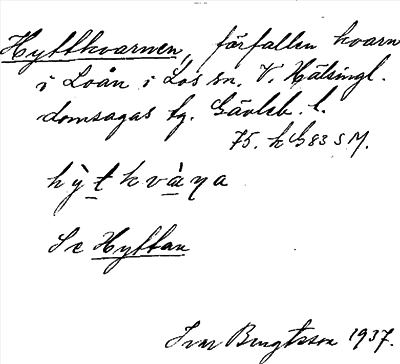 Hyttkvarnen, förfallen kvarn
i Loån i Los sn. V. Hälsingl.
domsagas tg. Gävleb. l.
75. h G 83 S M.
hỳtkvàṇa
Se Hyttan
Ivar Bengtsson 1937.